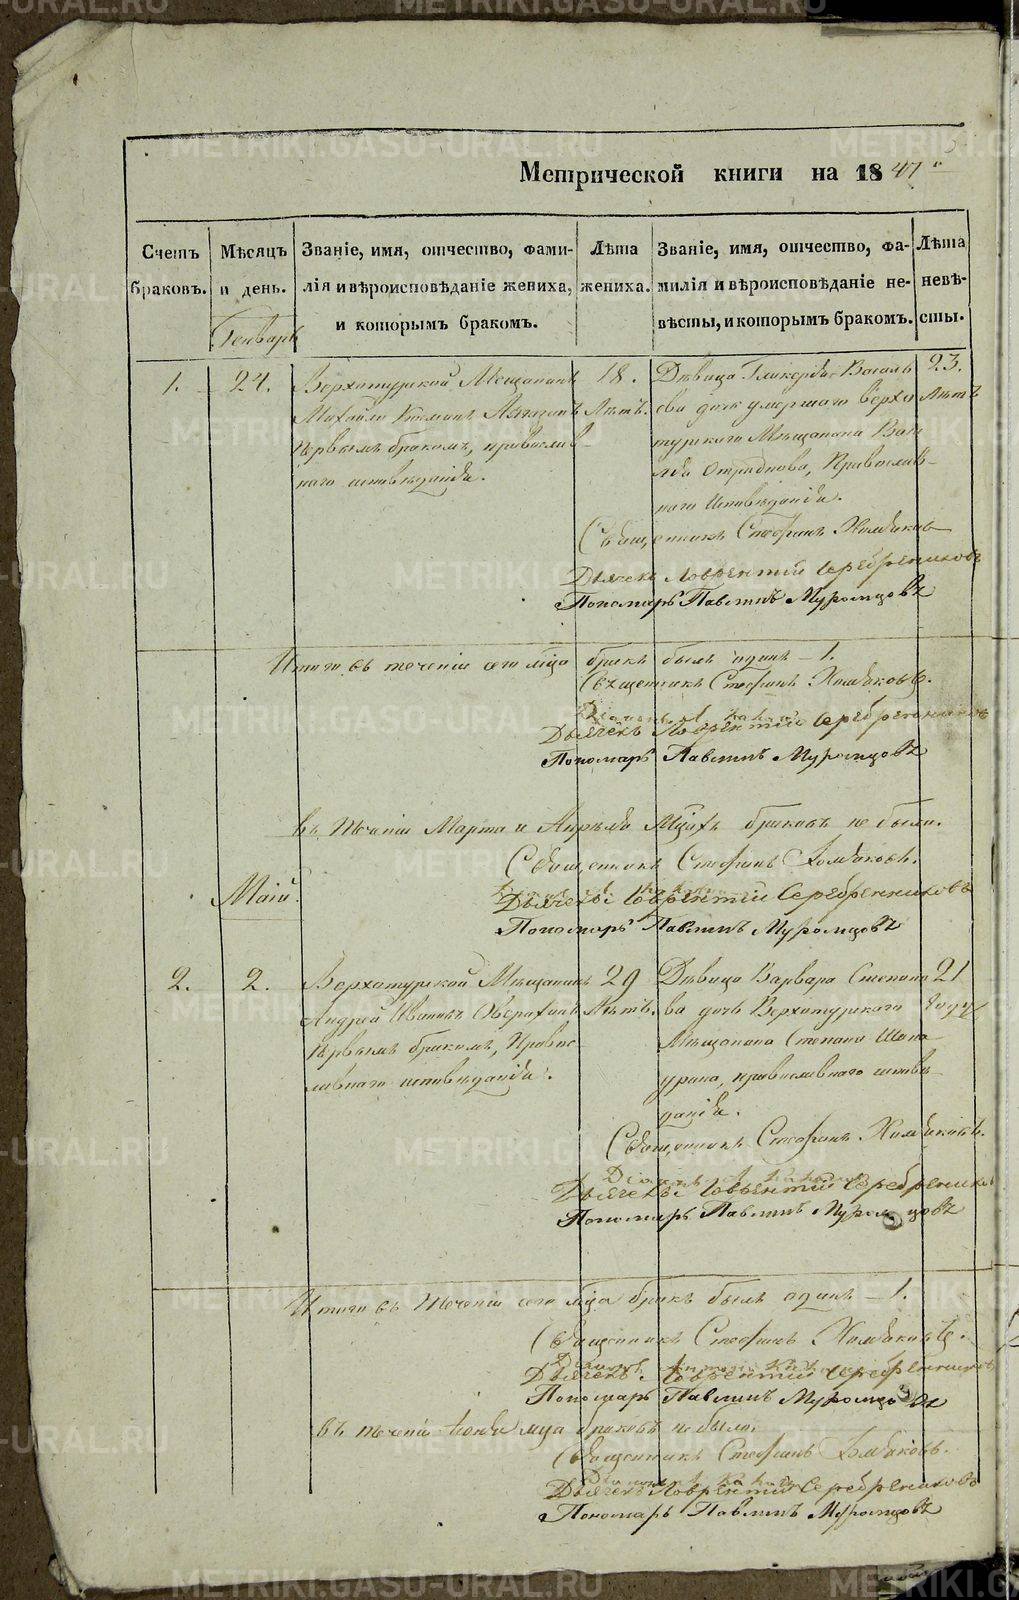 METRIKI.GASO-URAL.RU
Метрической книги на 1847
Счетъ браковъ.
Мѣсяцъ и день.
Званіе, имя, отчество, фамилія и вѣроисповѣданіе жениха, и которымъ бракомъ.
Лѣта жениха.
Званіе, имя, отчество, фамилія и вѣроисповѣданіе невѣсты, и которымъ бракомъ.
Лѣта невѣсты.
Генварь
1.
24.
Верхотурской Мещанинъ
Михайло
первымъ бракомъ, православ-
наго исповѣданія.
18.
Лѣтъ.
Дѣвица Гликерія Василь
ева дочь умершаго Верхо
турскаго Мѣщанина Васи
лія Отраднова, Православ-
наго Исповѣданія.
23.
Лѣтъ
Священникъ Стефанъ Хомяковъ
Дьячекъ Лаврентій Серебрениковъ
Пономарь Павлинъ Муромцовъ
Итого въ теченіи сего мца бракъ былъ одинъ – 1.
Священникъ Стефанъ Хомяковъ.
Дьячекъ Лаврентій Серебрениковъ
Пономарь Павлинъ Муромцовъ
въ теченіи Марта и Апрѣля Мцахъ браковъ не было.
Священникъ Стефанъ Хомяковъ.
Дьячекъ Лаврентій Серебренниковъ
Пономарь Павлинъ Муромцовъ
Маій.
2.
2.
Верхотурской Мѣщанинъ
Андрей Ивановъ
первымъ бракомъ, Право
славнаго исповѣданія.
29
Лѣтъ.
Дѣвица Варвара Степано
ва дочь Верхотурскаго
Мѣщанина Степана
православнаго исповѣ
данія.
21
году
Священникъ Стефанъ Хомяковъ.
Дьячекъ Лаврентій Серебрениковъ
Пономарь Павлинъ Муромцовъ
Итого въ теченіи сего мца бракъ былъ одинъ – 1.
Священникъ Стефанъ Хомяковъ.
Дьячекъ Лаврентій Серебрениковъ
Пономарь Павлинъ Муромцовъ
въ теченіи Іюня мца браковъ не было.
Священникъ Стефанъ Хомяковъ.
Дьячекъ Лаврентій Серебрениковъ
Пономарь Павлинъ Муромцовъ